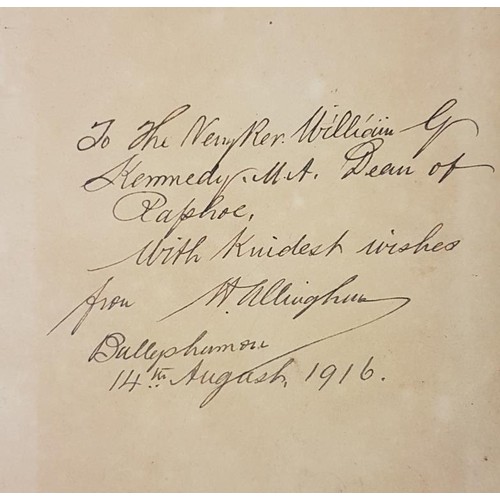 To The Very Rev. William G
Kennedy. M.A. Dean of
Raphoe,
With Kindest wishes
from H. Allingham
Ballyshannon
14th August, 1916.